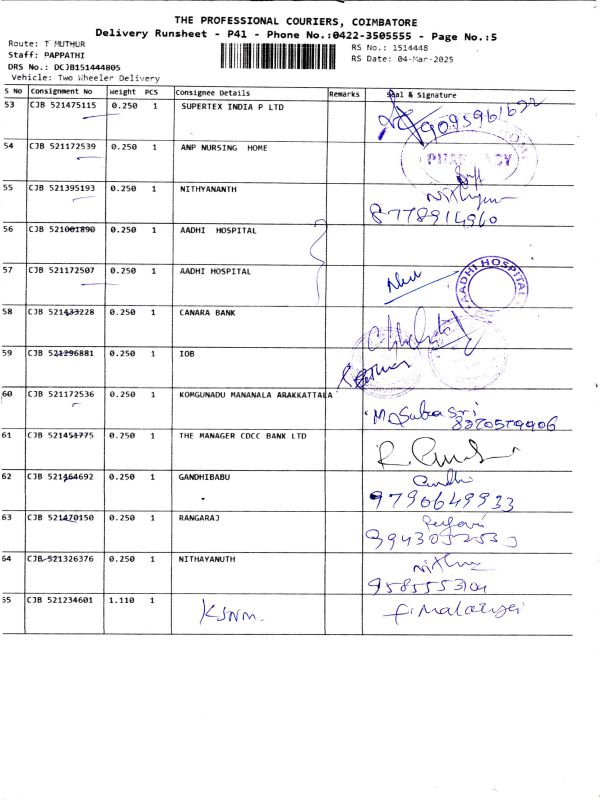 THE PROFESSIONAL COURIERS, COIMBATORE
Delivery Runsheet - P41 - Phone No.:0422-3505555 - Page No.:5
Route: T MUTHUR
RS No.: 1514448
Staff: PAPPATHI
RS Date: 04-Mar-2025
DRS No.: DCJB151444805
Vehicle: Two Wheeler Delivery
S No Consignment No Weight PCS Consignee Details Remarks Seal & Signature
53 CJB 521475115 0.250 1 SUPERTEX INDIA P LTD
54 CJB 521172539 0.250 1 ANP NURSING HOME
55 CJB 521395193 0.250 1 NITHYANANTH
8778914960
56 CJB 521001890 0.250 1 AADHI HOSPITAL
57 CJB 521172507 0.250 1 AADHI HOSPITAL
AADHI HOSPITAL
58 CJB 521433228 0.250 1 CANARA BANK
59 CJB 521296881 0.250 1 IOB
60 CJB 521172536 0.250 1 KOMGUNADU MANANALA ARAKKATTALA
61 CJB 521451775 0.250 1 THE MANAGER CDCC BANK LTD
62 CJB 521464692 0.250 1 GANDHIBABU
9790649933
63 CJB 521470150 0.250 1 RANGARAJ
64 CJB 521326376 0.250 1 NITHAYANUTH
65 CJB 521234601 1.110 1 KSNM.